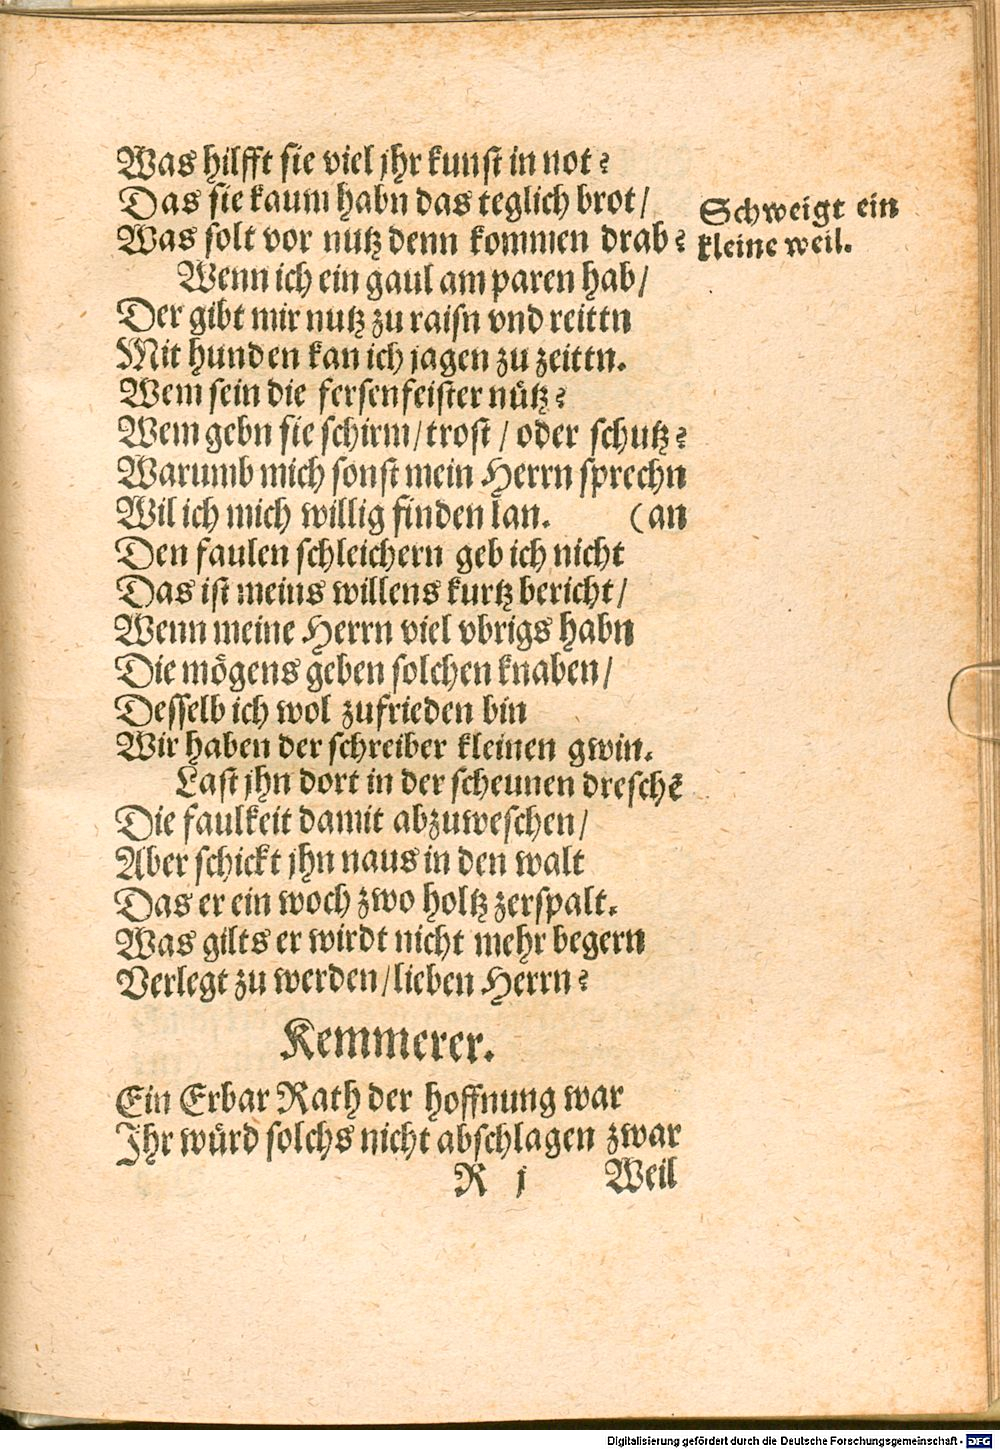 Was hilfft sie viel jhr kunst in not?
Das sie kaum habn das teglich brot/
Was solt vor nutz denn kommen drab?
Schweigt ein
kleine weil.
Wenn ich ein gaul am paren hab/
Der gibt mir nutz zu raisn vnd reittn
Mit hunden kan ich jagen zu zeittn.
Wem sein die fersenfeister nütz?
Wem gebn sie schirm/trost/oder schutz?
Warumb mich sonst mein Herrn sprechn
Wil ich mich willig finden lan. (an
Den faulen schleichern geb ich nicht
Das ist meins willens kurtz bericht/
Wenn meine Herrn viel vbrigs habn
Die mögens geben solchen knaben/
Desselb ich wol zufrieden bin
Wir haben der schreiber kleinen gwin.
Last jhn dort in der scheunen dreschē
Die faulkeit damit abzuweschen/
Aber schickt jhn naus in den walt
Das er ein woch zwo holtz zerspalt.
Was gilts er wirdt nicht mehr begern
Verlegt zu werden/lieben Herrn?
Kemmerer.
Ein Erbar Rath der hoffnung war
Ihr würd solchs nicht abschlagen zwar
R j Weil
Digitalisierung gefördert durch die Deutsche Forschungsgemeinschaft - DFG